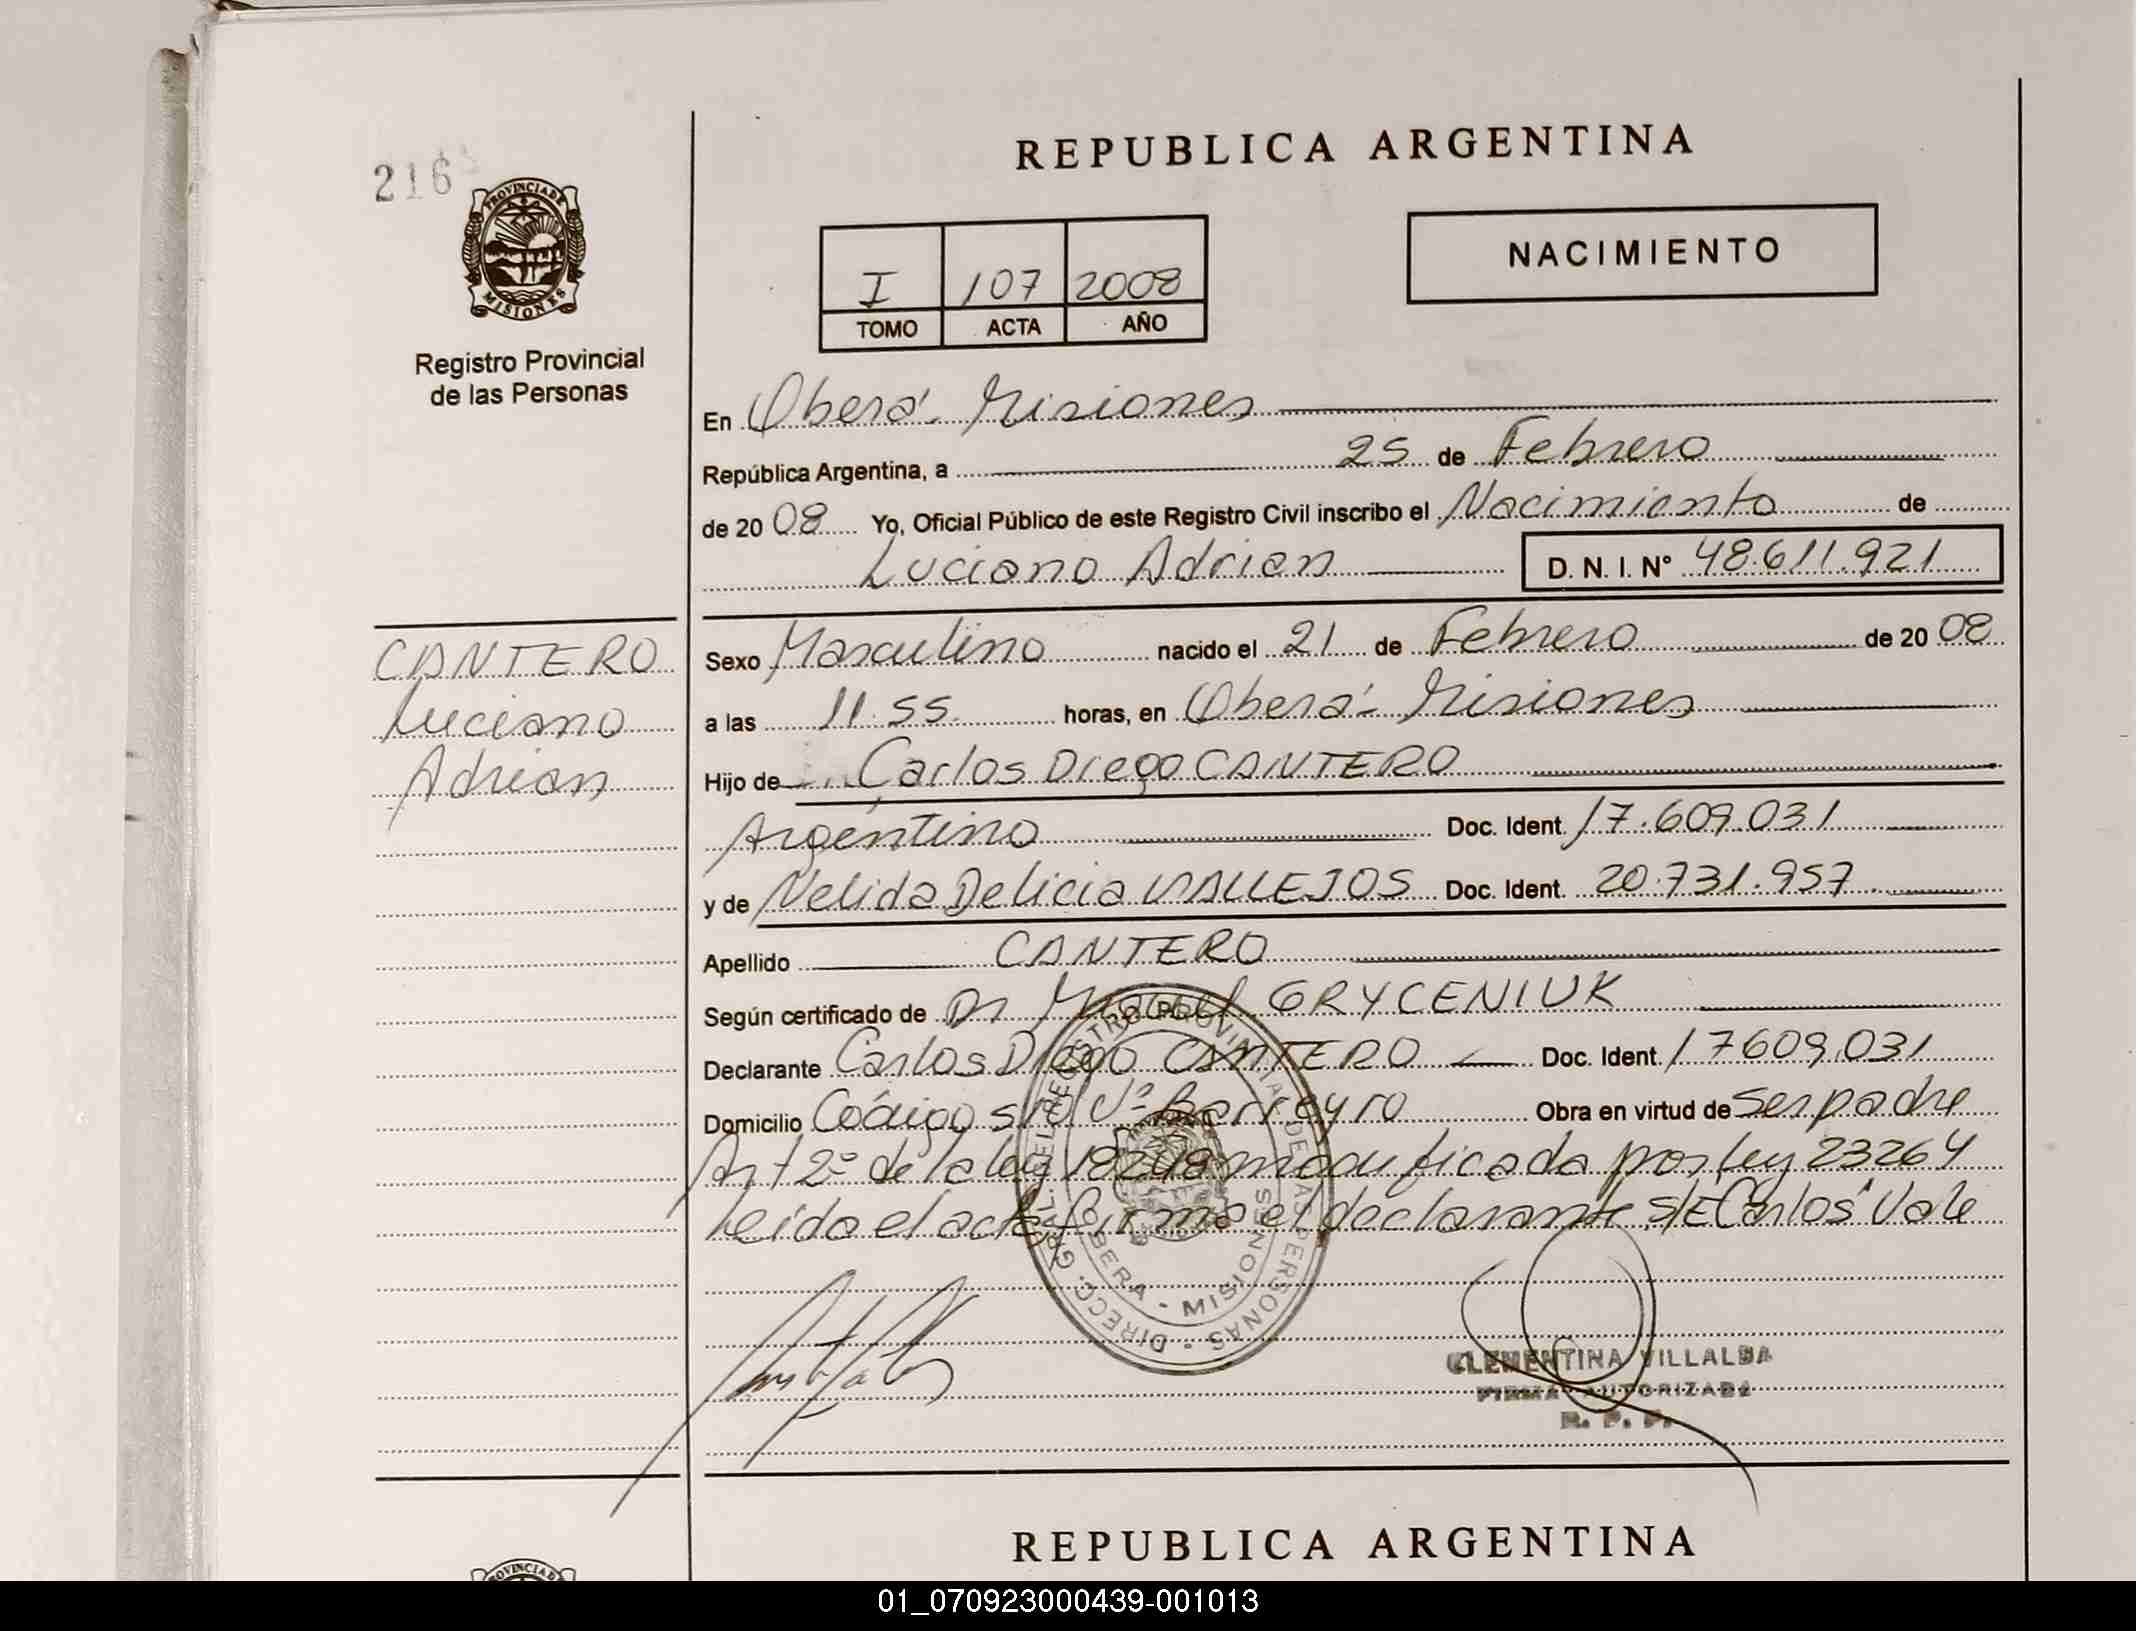 216
PROVINCIA DE
MISIONES
Registro Provincial
de las Personas
REPUBLICA ARGENTINA
I 107 2008
TOMO ACTA AÑO
NACIMIENTO
En Oberá - Misiones
República Argentina, a 25 de Febrero
de 2008 Yo, Oficial Público de este Registro Civil inscribo el Nacimiento de
Luciano Adrian D. N. I. Nº 48.611.921
CANTERO
Luciano
Adrian
Sexo Masculino nacido el 21 de Febrero de 2008
a las 11.55 horas, en Oberá - Misiones
Hijo de Carlos Diego CANTERO
Argentino Doc. Ident. 17.609.031
y de Nelida Delicia VALLEJOS Doc. Ident. 20.731.957
Apellido CANTERO
Según certificado de Dr Miguel GRYCENIUK
Declarante Carlos Diego CANTERO Doc. Ident. 17609.031
Domicilio Código 510 Vº Barreyro Obra en virtud de ser padre
Art 2º de la ley 18248 modificada por ley 23264
Leida el acta firma el declarante S/E "Carlos" Vale
DIRECC. GRAL. DEL REGISTRO PROVINCIAL DE LAS PERSONAS
OBERA - MISIONES
CLEMENTINA VILLALBA
FIRMA AUTORIZADA
R. P. P.
REPUBLICA ARGENTINA
PROVINCIA D
01_070923000439-001013